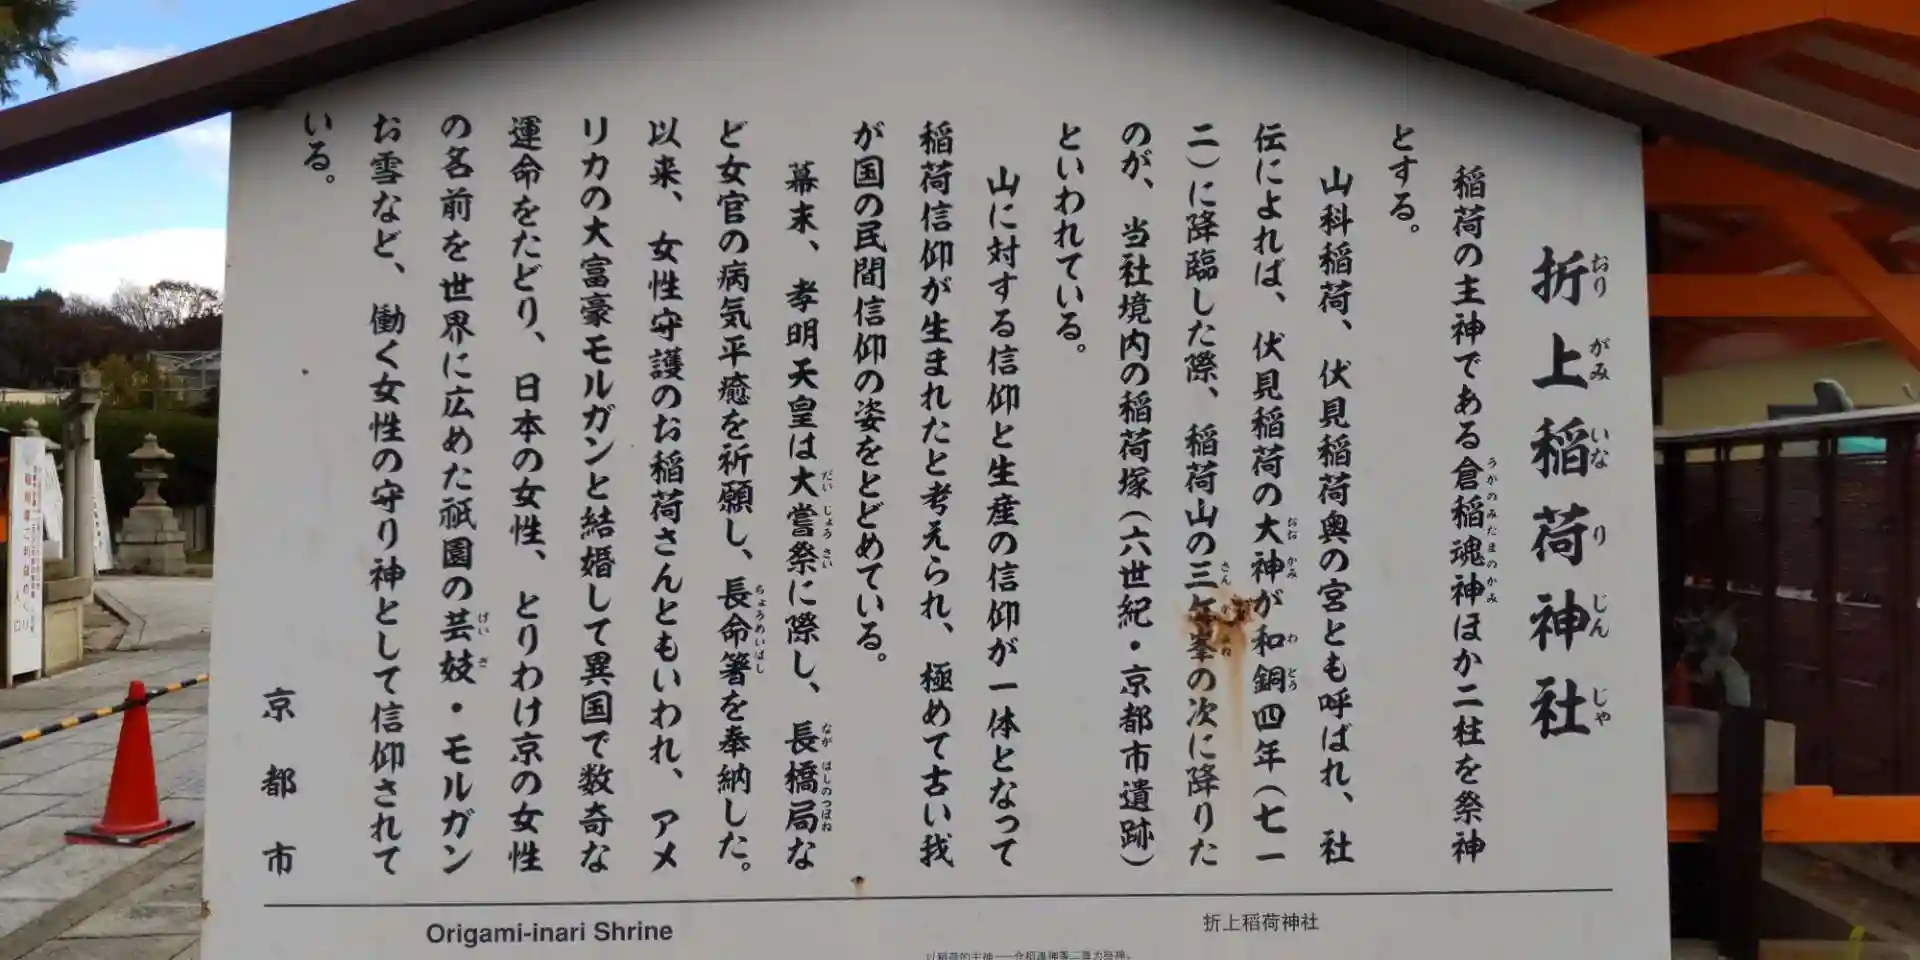 折上稲荷神社
おり がみ いな り じん じゃ
稲荷の主神である倉稲魂神ほか二柱を祭神
うかのみたまのかみ
とする。
山科稲荷、伏見稲荷奥の宮とも呼ばれ、社
伝によれば、伏見稲荷の大神が和銅四年(七一
おお かみ わ どう
二)に降臨した際、稲荷山の三ケ峯の次に降りた
さん みね
のが、当社境内の稲荷塚(六世紀・京都市遺跡)
といわれている。
山に対する信仰と生産の信仰が一体となって
稲荷信仰が生まれたと考えられ、極めて古い我
が国の民間信仰の姿をとどめている。
幕末、孝明天皇は大嘗祭に際し、長橋局な
だい じょう さい なが はしのつぼね
ど女官の病気平癒を祈願し、長命箸を奉納した。
ちょうめいばし
以来、女性守護のお稲荷さんともいわれ、アメ
リカの大富豪モルガンと結婚して異国で数奇な
運命をたどり、日本の女性、とりわけ京の女性
の名前を世界に広めた祇園の芸妓・モルガン
げい ぎ
お雪など、働く女性の守り神として信仰されて
いる。
京都市
Origami-inari Shrine
折上稲荷神社